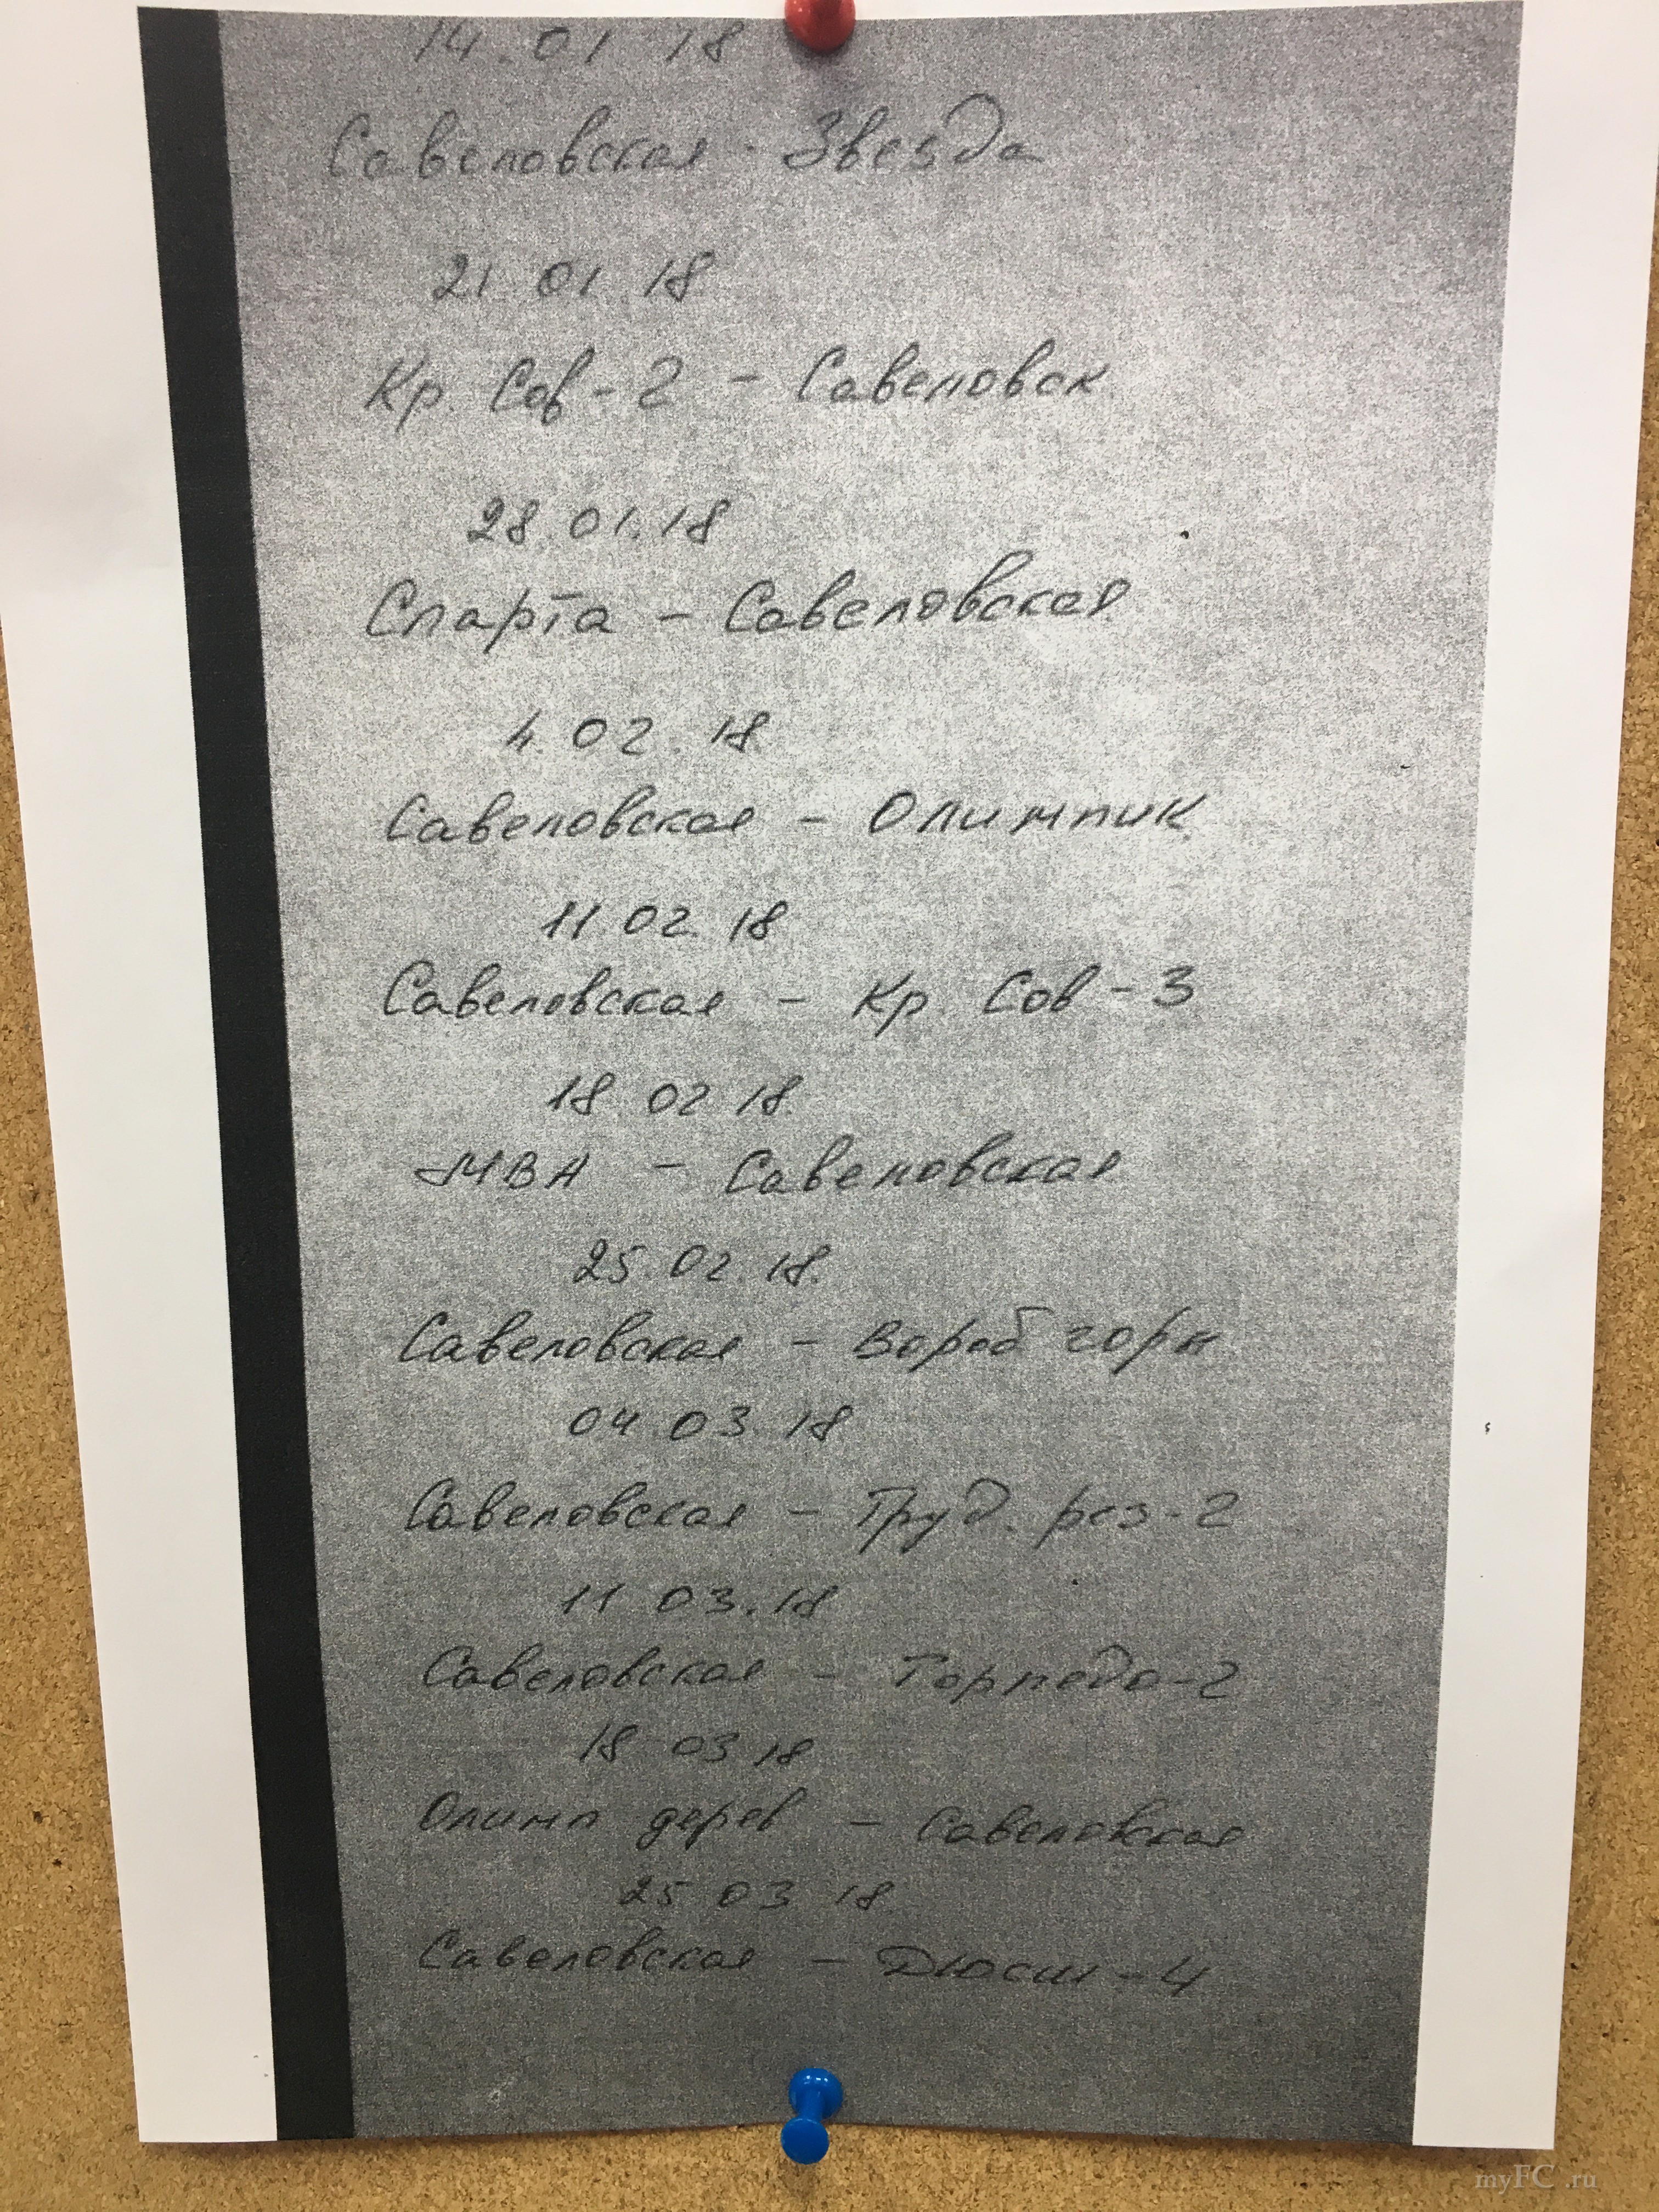 14.01 18
Савеловская - Звезда
21 01 18
Кр. Сов-2 - Савеловск.
28.01.18
Спарта - Савеловская
4.02.18
Савеловская - Олимпик
11.02.18
Савеловская - Кр. Сов-3
18 02 18.
МВА - Савеловская
25.02.18.
Савеловская - Вороб горы
04 03 18
Савеловская - Труд. рез-2
11 03.18
Савеловская - Торпедо-2
18 03 18
Олимп дерев - Савеловская
25 03 18.
Савеловская - Дюсш-4
myFC.ru